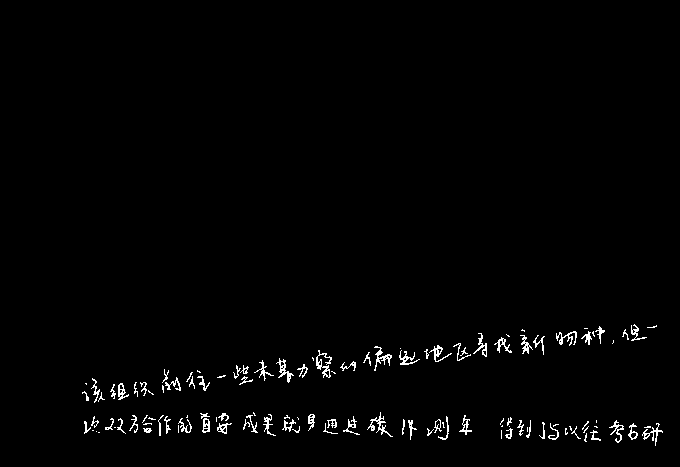 该组织前往一些未勘察的偏远地区寻找新物种，但一
次双方合作的首要成果就是通过碳14测年 得到与以往考古研